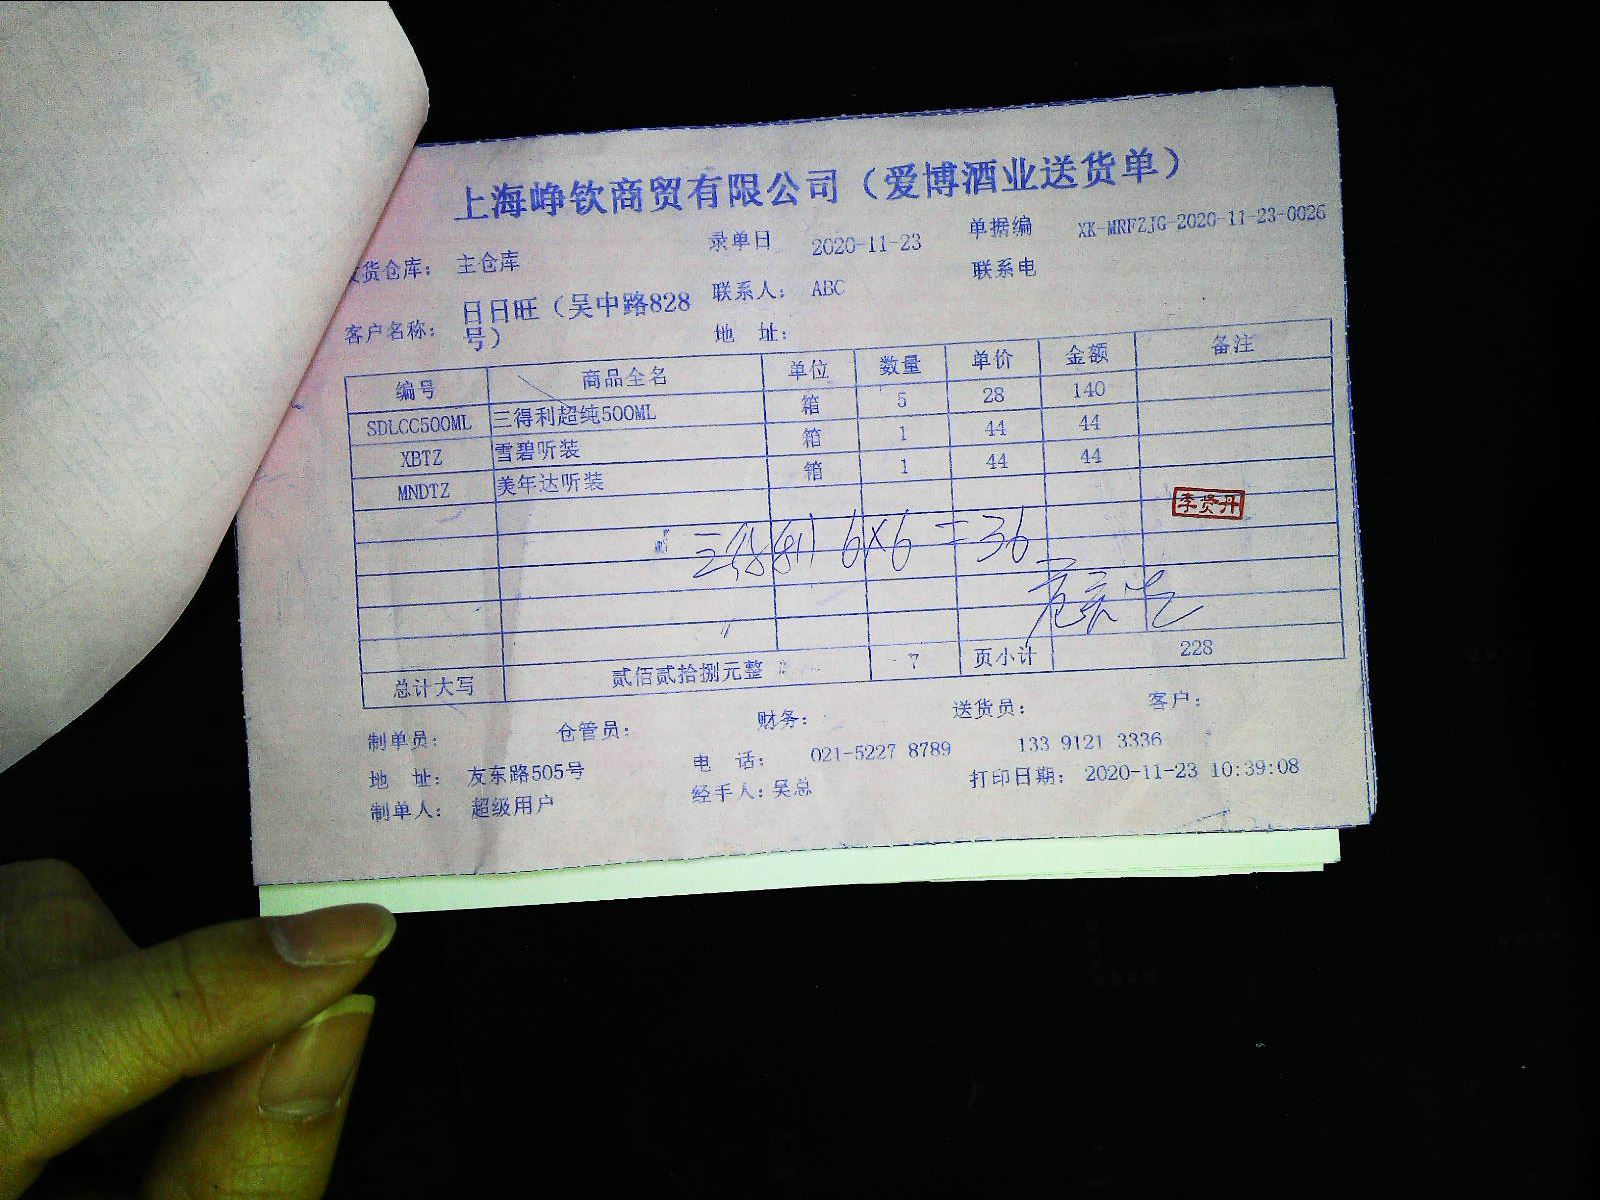 上海峥钦商贸有限公司（爱博酒业送货单）
货仓库： 主仓库 录单日 2020-11-23 单据编 XK-MRFZJG-2020-11-23-0026
客户名称： 日日旺（吴中路828号） 联系人： ABC 联系电
地 址：
编号 商品全名 单位 数量 单价 金额 备注
SDLCC500ML 三得利超纯500ML 箱 5 28 140
XBTZ 雪碧听装 箱 1 44 44
MNDTZ 美年达听装 箱 1 44 44
李贤丹
三得利 6×6=36
总计大写 贰佰贰拾捌元整 7 页小计 228
制单员： 仓管员： 财务： 送货员： 客户：
地 址： 友东路505号 电 话： 021-5227 8789 133 9121 3336
制单人： 超级用户 经手人：吴总 打印日期： 2020-11-23 10:39:08